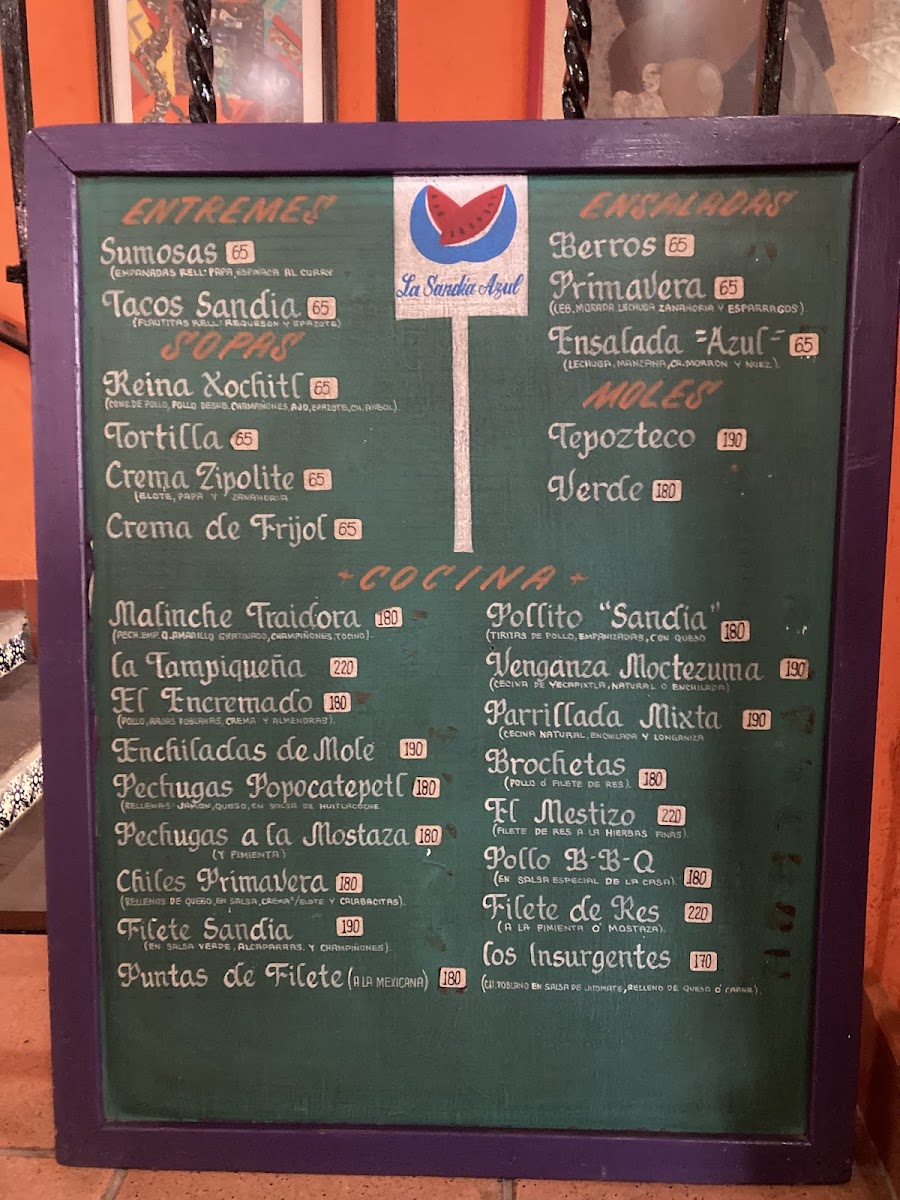 ENTREMES
Sumosas 65
(EMPANADAS RELL: PAPA, ESPINACA AL CURRY
Tacos Sandia 65
(FLAUTITAS RELL: REQUESON Y EPAZOTE)
SOPAS
Reina Xochitl 65
(CONC. DE POLLO, POLLO DESHE. CHAMPIÑONES, AJO, EPAZOTE, CH. ARBOL).
Tortilla 65
Crema Zipolite 65
(ELOTE, PAPA Y ZANAHORIA
Crema de Frijol 65
La Sandía Azul
ENSALADAS
Berros 65
Primavera 65
(CEB. MORADA LECHUGA ZANAHORIA Y ESPARRAGOS).
Ensalada -Azul- 65
(LECHUGA, MANZANA, CH. MORRON Y NUEZ).
MOLES
Tepozteco 190
Verde 180
+ COCINA +
Malinche Traidora 180
(PECH. EMP. Q. AMARILLO GRATINADO, CHAMPIÑONES, TOCINO).
la Tampiqueña 220
El Encremado 180
(POLLO, RAJAS POBLANAS, CREMA Y ALMENDRAS).
Enchiladas de Mole 190
Pechugas Popocatepetl 180
(RELLENAS: JAMON, QUESO, EN SALSA DE HUITLACOCHE
Pechugas a la Mostaza 180
(Y PIMIENTA)
Chiles Primavera 180
(RELLENOS DE QUESO, EN SALSA, CREMA C/ELOTE Y CALABACITAS).
Filete Sandia 190
(EN SALSA VERDE, ALCAPARRAS. Y CHAMPIÑONES).
Puntas de Filete (A LA MEXICANA) 180
Pollito "Sandía" 180
(TIRITAS DE POLLO, EMPANIZADAS, CON QUESO
Venganza Moctezuma 190
(CECINA DE YECAPIXTLA, NATURAL O ENCHILADA)
Parrillada Mixta 190
(CECINA NATURAL, ENCHILADA Y LONGANIZA
Brochetas 180
(POLLO Ó FILETE DE RES).
El Mestizo 220
(FILETE DE RES A LA HIERBAS FINAS).
Pollo B-B-Q 180
(EN SALSA ESPECIAL DE LA CASA).
Filete de Res 220
(A LA PIMIENTA O' MOSTAZA).
los Insurgentes 170
(CH. POBLANO EN SALSA DE JITOMATE, RELLENO DE QUESO O' CARNE).